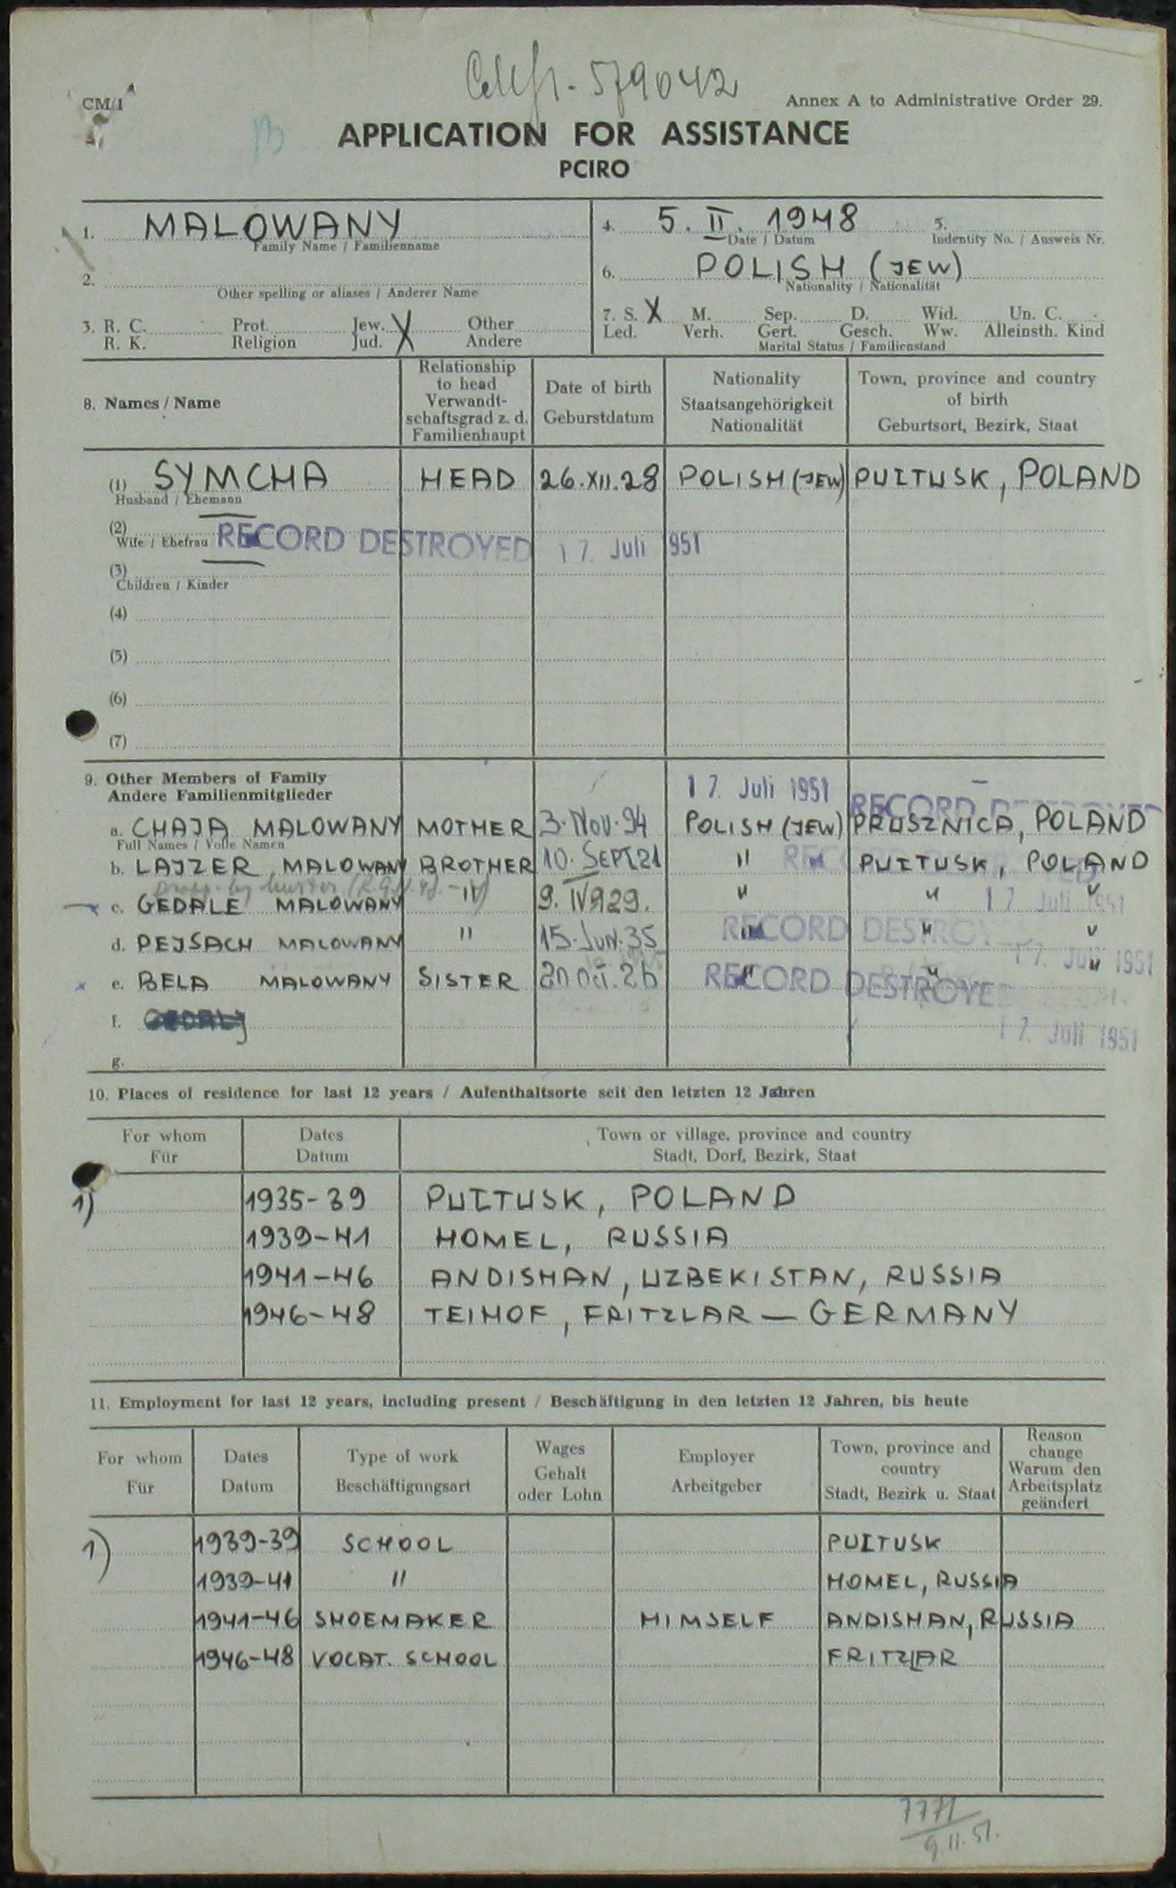 579042
CM/1
Annex A to Administrative Order 29.
APPLICATION FOR ASSISTANCE
PCIRO
1. MALOWANY
Family Name / Familienname
2.
Other spelling or aliases / Anderer Name
3. R. C. Prot. Jew. X Other
R. K. Religion Jud. Andere
4. 5. II. 1948 5.
Date / Datum Indentity No. / Ausweis Nr.
6. POLISH (JEW)
Nationality / Nationalität
7. S. X M. Sep. D. Wid. Un. C.
Led. Verh. Gert. Gesch. Ww. Alleinsth. Kind
Marital Status / Familienstand
8. Names / Name
Relationship to head
Verwandt-
schaftsgrad z. d.
Familienhaupt
Date of birth
Geburstdatum
Nationality
Staatsangehörigkeit
Nationalität
Town, province and country
of birth
Geburtsort, Bezirk, Staat
(1) SYMCHA HEAD 26.XII.28 POLISH (JEW) PUŁTUSK, POLAND
Husband / Ehemann
(2)
Wife / Ehefrau RECORD DESTROYED 17. Juli 1951
(3)
Children / Kinder
(4)
(5)
(6)
(7)
9. Other Members of Family
Andere Familienmitglieder
17. Juli 1951
RECORD DESTROYED
a. CHAJA MALOWANY MOTHER 3.NOV.94 POLISH (JEW) PRUSZNICA, POLAND
Full Names / Volle Namen
b. LAJZER MALOWANY BROTHER 10.SEPT.21 " PUŁTUSK, POLAND
c. GEDALE MALOWANY " 9.IV.929. " " "
17. Juli 1951
d. PEJSACH MALOWANY " 15.JUN.35 " " "
RECORD DESTROY
17. Juli 1951
e. BELA MALOWANY SISTER 20 OCT.26 " " "
RECORD DESTROYE
f.
17. Juli 1951
g.
10. Places of residence for last 12 years / Aufenthaltsorte seit den letzten 12 Jahren
For whom
Für
Dates
Datum
Town or village, province and country
Stadt, Dorf, Bezirk, Staat
1) 1935-39 PUŁTUSK, POLAND
1939-41 HOMEL, RUSSIA
1941-46 ANDISHAN, UZBEKISTAN, RUSSIA
1946-48 TEIHOF, FRITZLAR — GERMANY
11. Employment for last 12 years, including present / Beschäftigung in den letzten 12 Jahren, bis heute
For whom
Für
Dates
Datum
Type of work
Beschäftigungsart
Wages
Gehalt
oder Lohn
Employer
Arbeitgeber
Town, province and
country
Stadt, Bezirk u. Staat
Reason
change
Warum den
Arbeitsplatz
geändert
1) 1939-39 SCHOOL PUŁTUSK
1939-41 " HOMEL, RUSSIA
1941-46 SHOEMAKER HIMSELF ANDISHAN, RUSSIA
1946-48 VOCAT. SCHOOL FRITZLAR
7771
9.11.51.